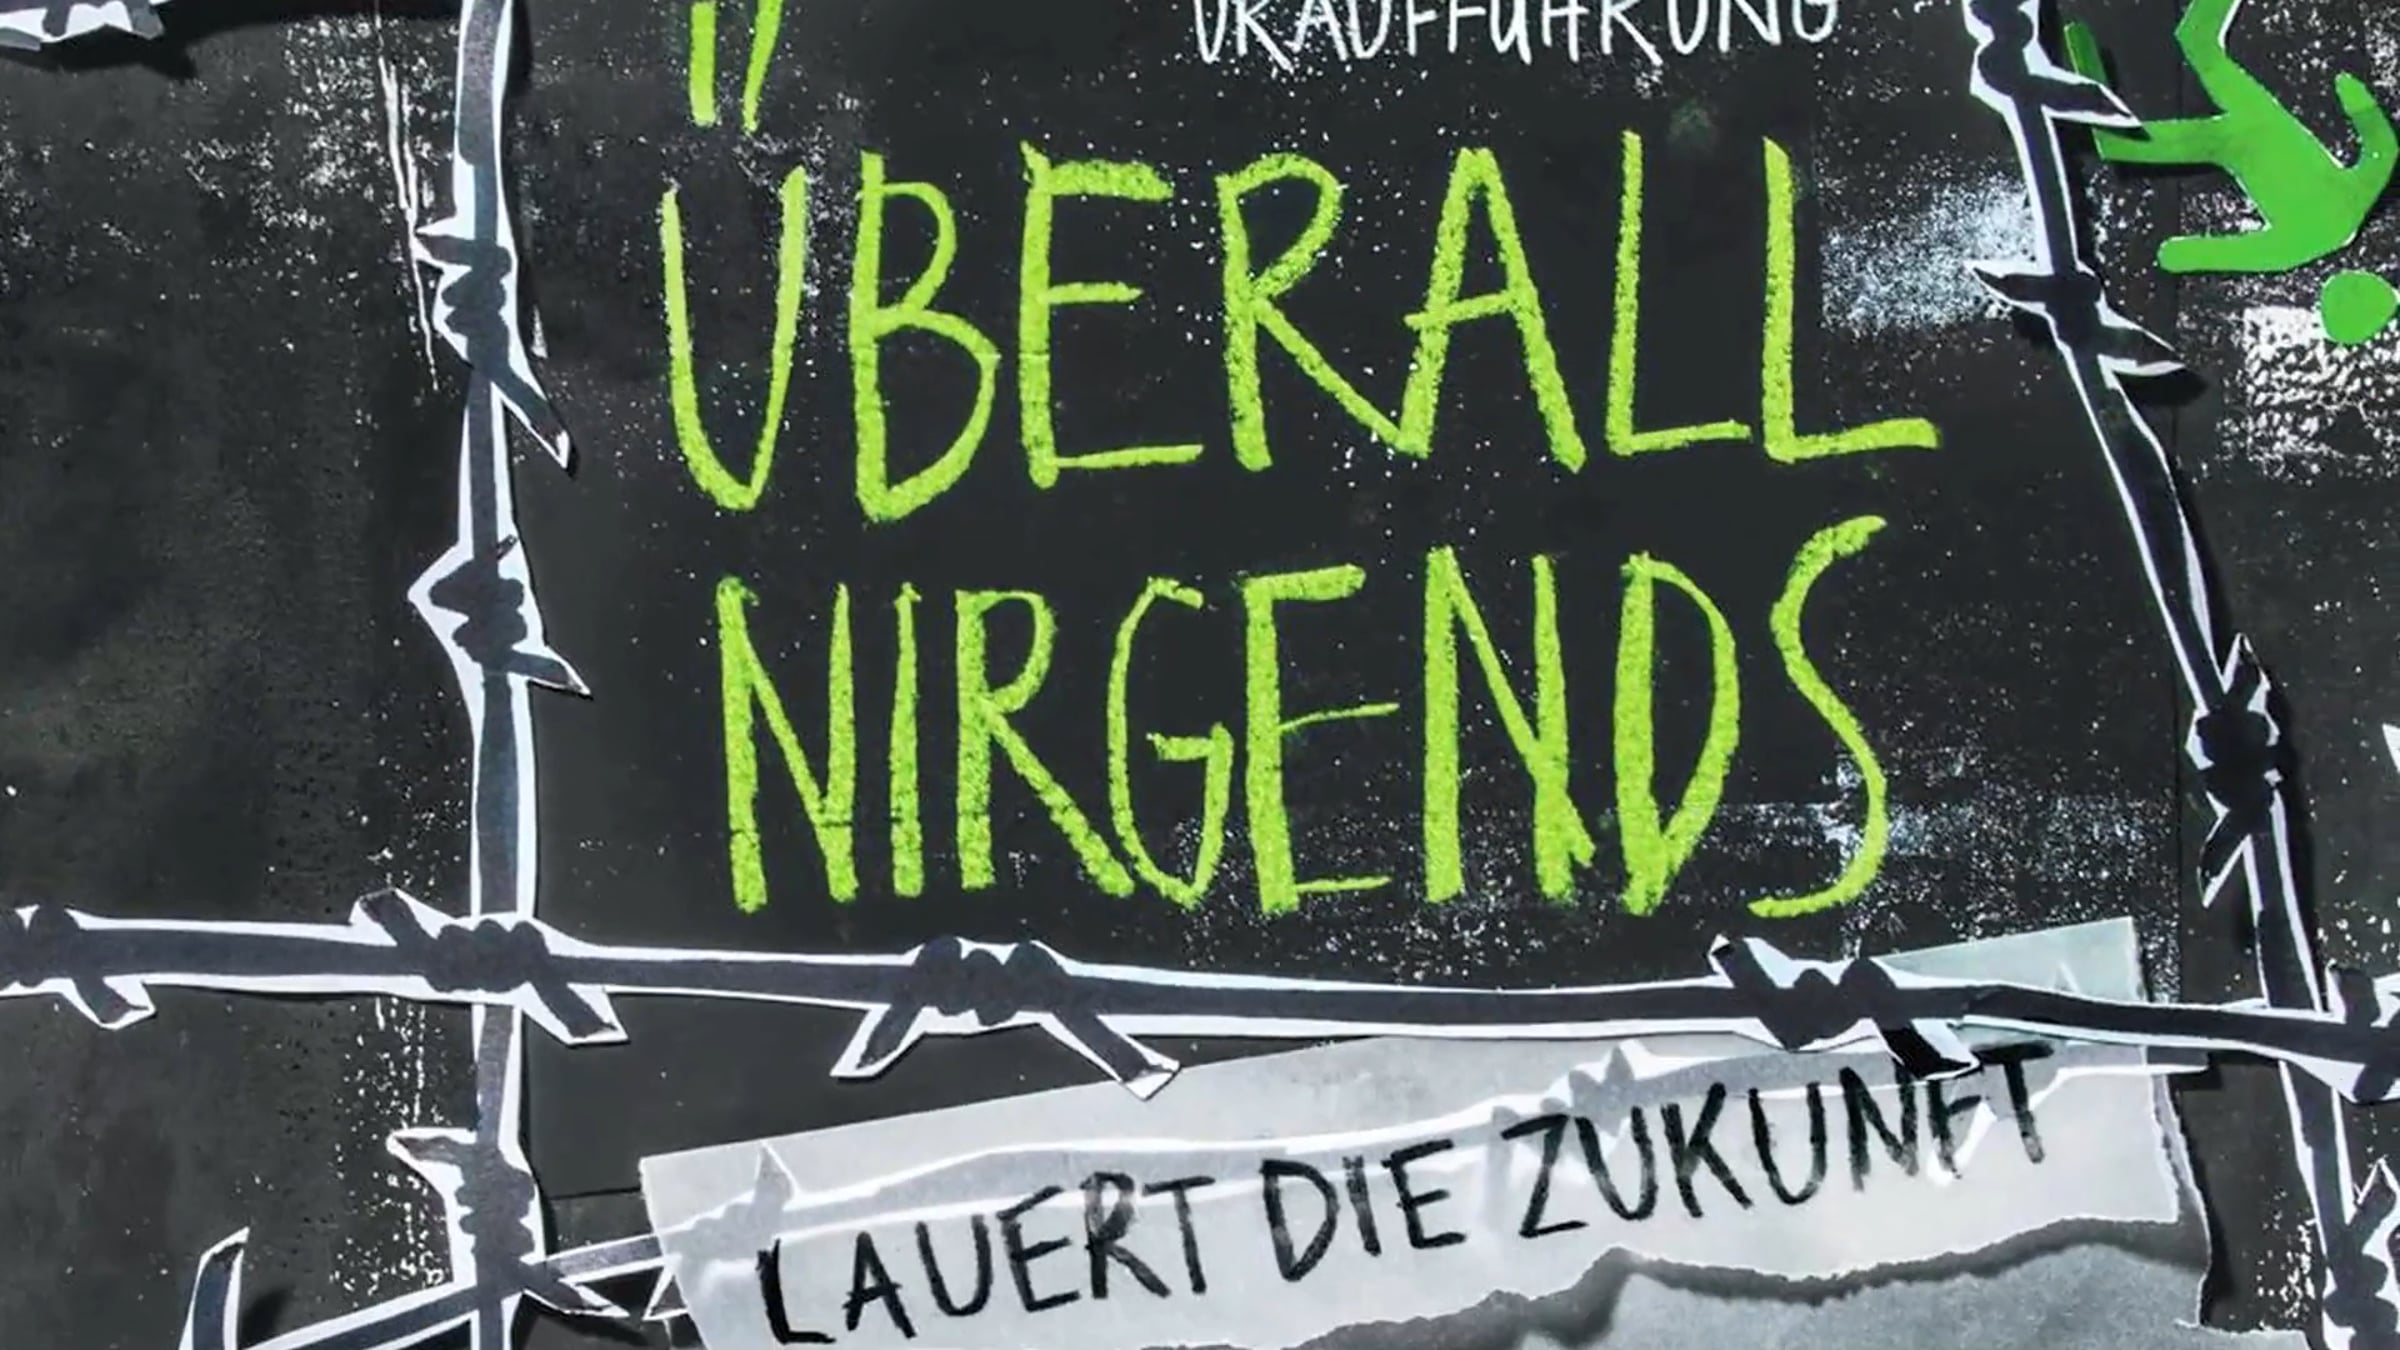 URAUFFÜHRUNG
ÜBERALL
NIRGENDS
LAUERT DIE ZUKUNFT